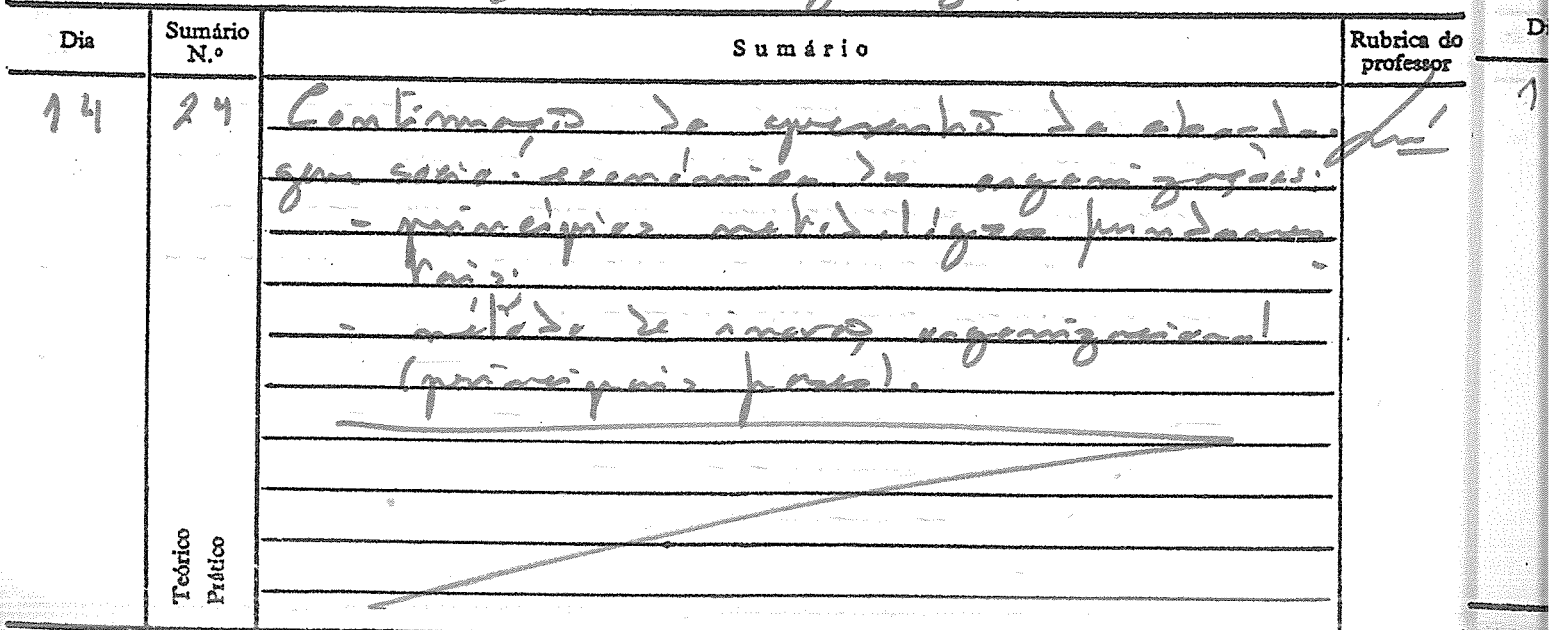 Dia Sumário N.º Sumário Rubrica do professor
14 24 Continuação da apresentação da aborda-
gem sócio-económica das organizações:
- princípios metodológicos fundamen-
tais;
- método de inovação organizacional
(principais fases).
Teórico
Prático